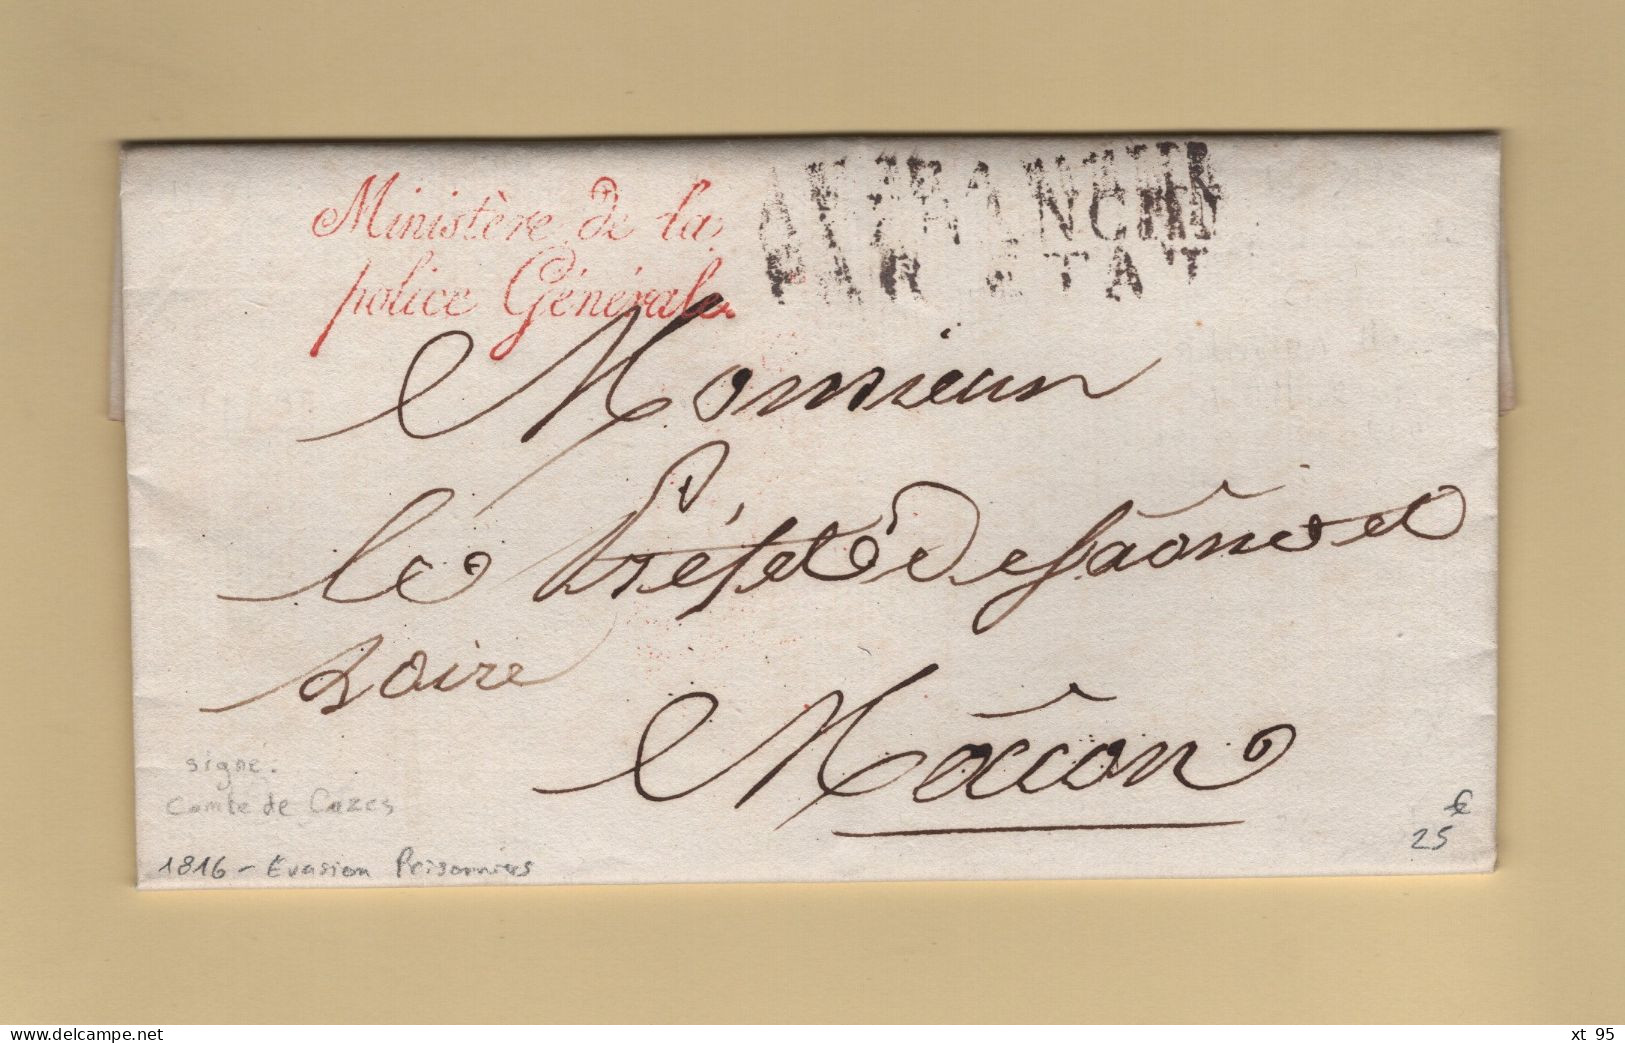 Ministère de la
police Générale.
AFFRANCHI
PAR ETAT
Monsieur
le Préfet de Saône et
Loire
Mâcon
signé.
Comte de Cazes
1816 - Evasion Prisonniers
€
25
www.delcampe.net
xt_95